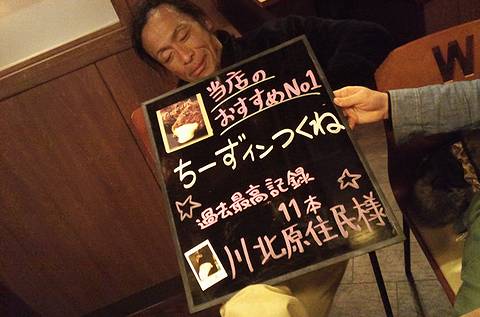 当店の
おすすめNo1
ちーずインつくね
過去最高記録
11本
川北原住民様
W